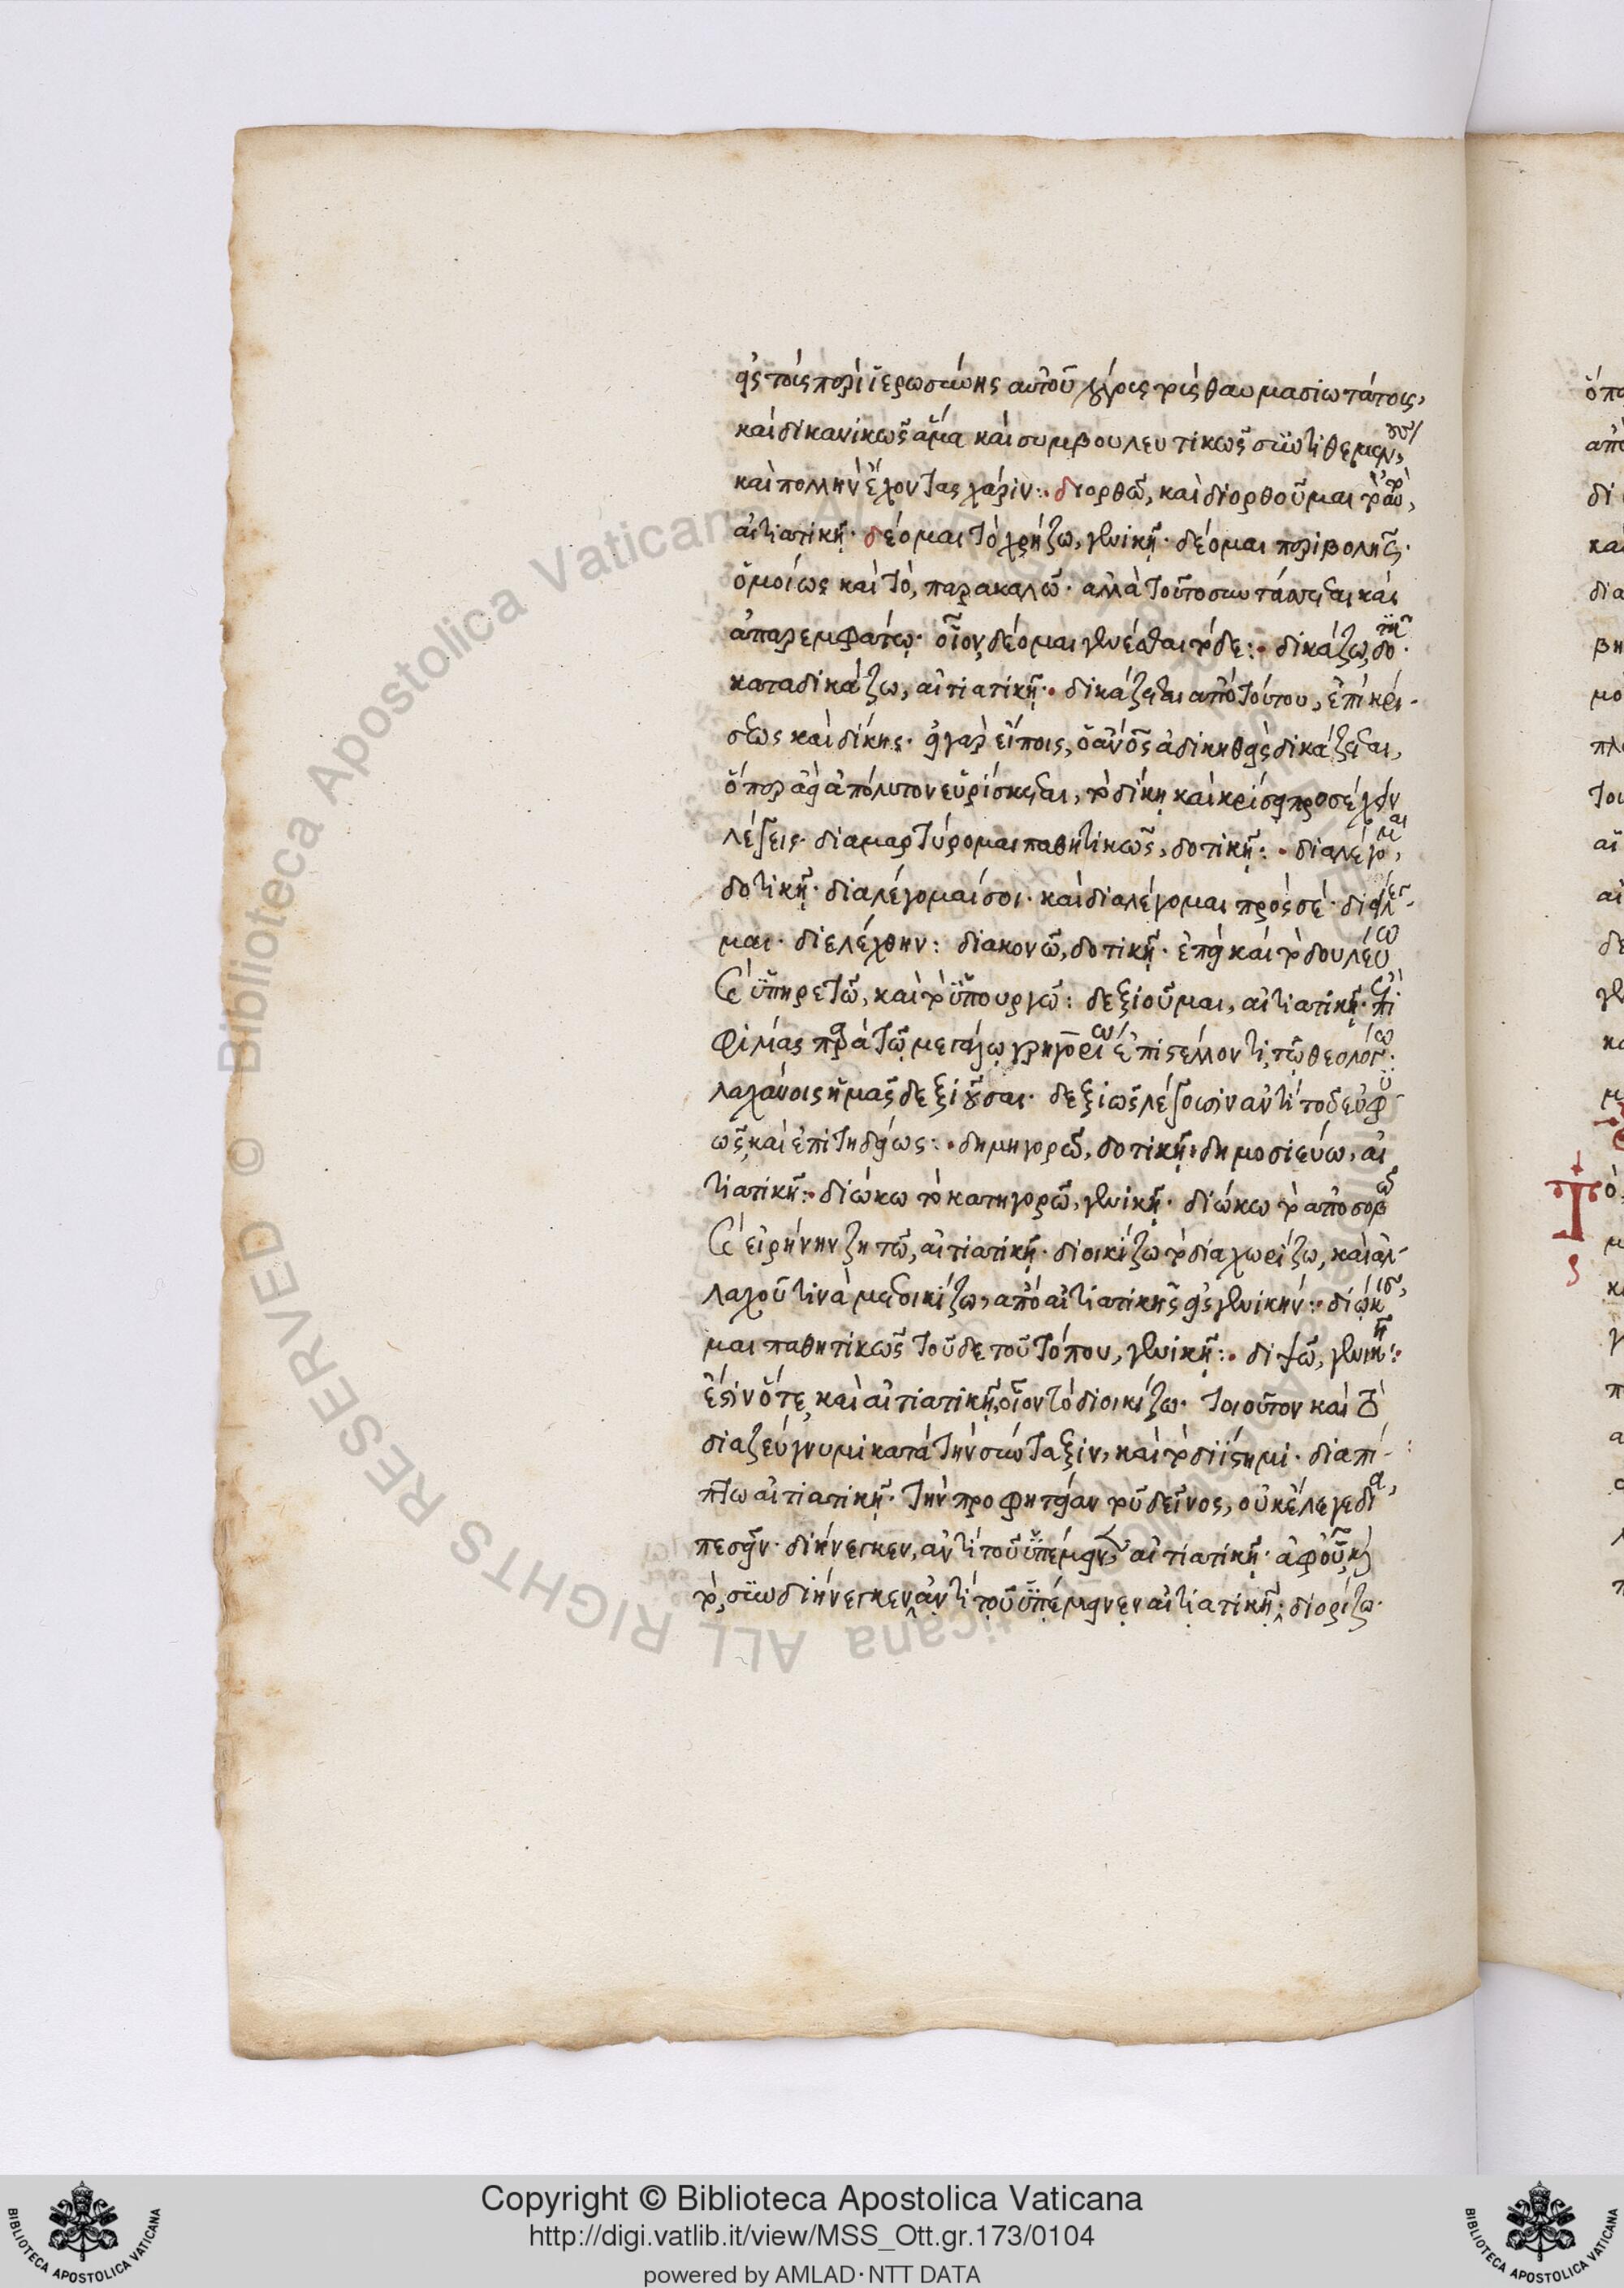 εἰς τοῖς περὶ ἱερωσύνης αὐτοῦ λόγοις τοῖς θαυμασιωτάτοις,
καὶ δικανικῶς ἅμα καὶ συμβουλευτικῶς συντιθεμένους,
καὶ πολλὴν ἔχοντας χάριν:· διορθῶ, καὶ διορθοῦμαι τὸ αὐτό,
αἰτιατικῇ· δέομαι τὸ χρήζω, γενικῇ· δέομαι περιβολῆς·
ὁμοίως καὶ τὸ, παρακαλῶ· ἀλλὰ τοῦτο συντάσσεται καὶ
ἀπαρεμφάτῳ· οἷον, δέομαι γενέσθαι τόδε:· δικάζω, δοτικῇ·
καταδικάζω, αἰτιατικῇ:· δικάζεται ἀπὸ τούτου, ἐπὶ κρί-
σεως καὶ δίκης· εἰ γὰρ εἴποις, ὁ ἄνος ἀδικηθεὶς δικάζεται,
ὅπερ ἀεὶ ἀπόλυτον εὑρίσκεται, τὸ δίκῃ καὶ κρίσει προσέχειν
λέξεις· διαμαρτύρομαι παθητικῶς, δοτικῇ:· διαλέγομαι,
δοτικῇ· διαλέγομαί σοι· καὶ διαλέγομαι πρός σέ· διείλεγ-
μαι· διελέχθην: διακονῶ, δοτικῇ· ἐπεὶ καὶ τὸ δουλεύω
καὶ ὑπηρετῶ, καὶ τὸ ὑπουργῶ: δεξιοῦμαι, αἰτιατικῇ· ἐπεὶ
φιμᾶς παρὰ τῷ μεγάλῳ γρηγορίῳ ἐπιστέλλοντι, τῷ θεολόγῳ·
λαχάνοις ἡμᾶς δεξιοῦσαι· δεξιῶς λέγουσιν ἀντὶ τοῦ εὐφυ-
ῶς, καὶ ἐπιτηδείως:· δημηγορῶ, δοτικῇ· δημοσιεύω, αἰ
τιατικῇ:· διώκω τὸ κατηγορῶ, γενικῇ· διώκω τὸ ἀποσοβῶ
καὶ εἰρήνην ζητῶ, αἰτιατικῇ· διοικίζω τὸ διαχωρίζω, καὶ ἀλ-
λαχοῦ τινὰ μετοικίζω, ἀπὸ αἰτιατικῆς εἰς γενικήν:· διῴκισ
μαι παθητικῶς τοῦδε τοῦ τόπου, γενικῇ:· διψῶ, γενικῇ:·
ἔστιν ὅτε, καὶ αἰτιατικῇ, οἷον τὸ διοικίζω· τοιοῦτον καὶ τὸ
διαζεύγνυμι κατὰ τὴν σύνταξιν, καὶ τὸ διίστημι· διαπί-
πτω αἰτιατικῇ· τὴν προφητείαν τοῦ δεῖνος, οὐκ ἔλεγε δια
πεσεῖν· διήνεγκεν, ἀντὶ τοῦ ὑπέμεινεν αἰτιατικῇ· ἀφ' οὗ καὶ
τὸ, συνδιήνεγκεν ἀντὶ τοῦ ὑπέμεινεν αἰτιατικῇ· διορίζω·
Copyright © Biblioteca Apostolica Vaticana
http://digi.vatlib.it/view/MSS_Ott.gr.173/0104
powered by AMLAD·NTT DATA